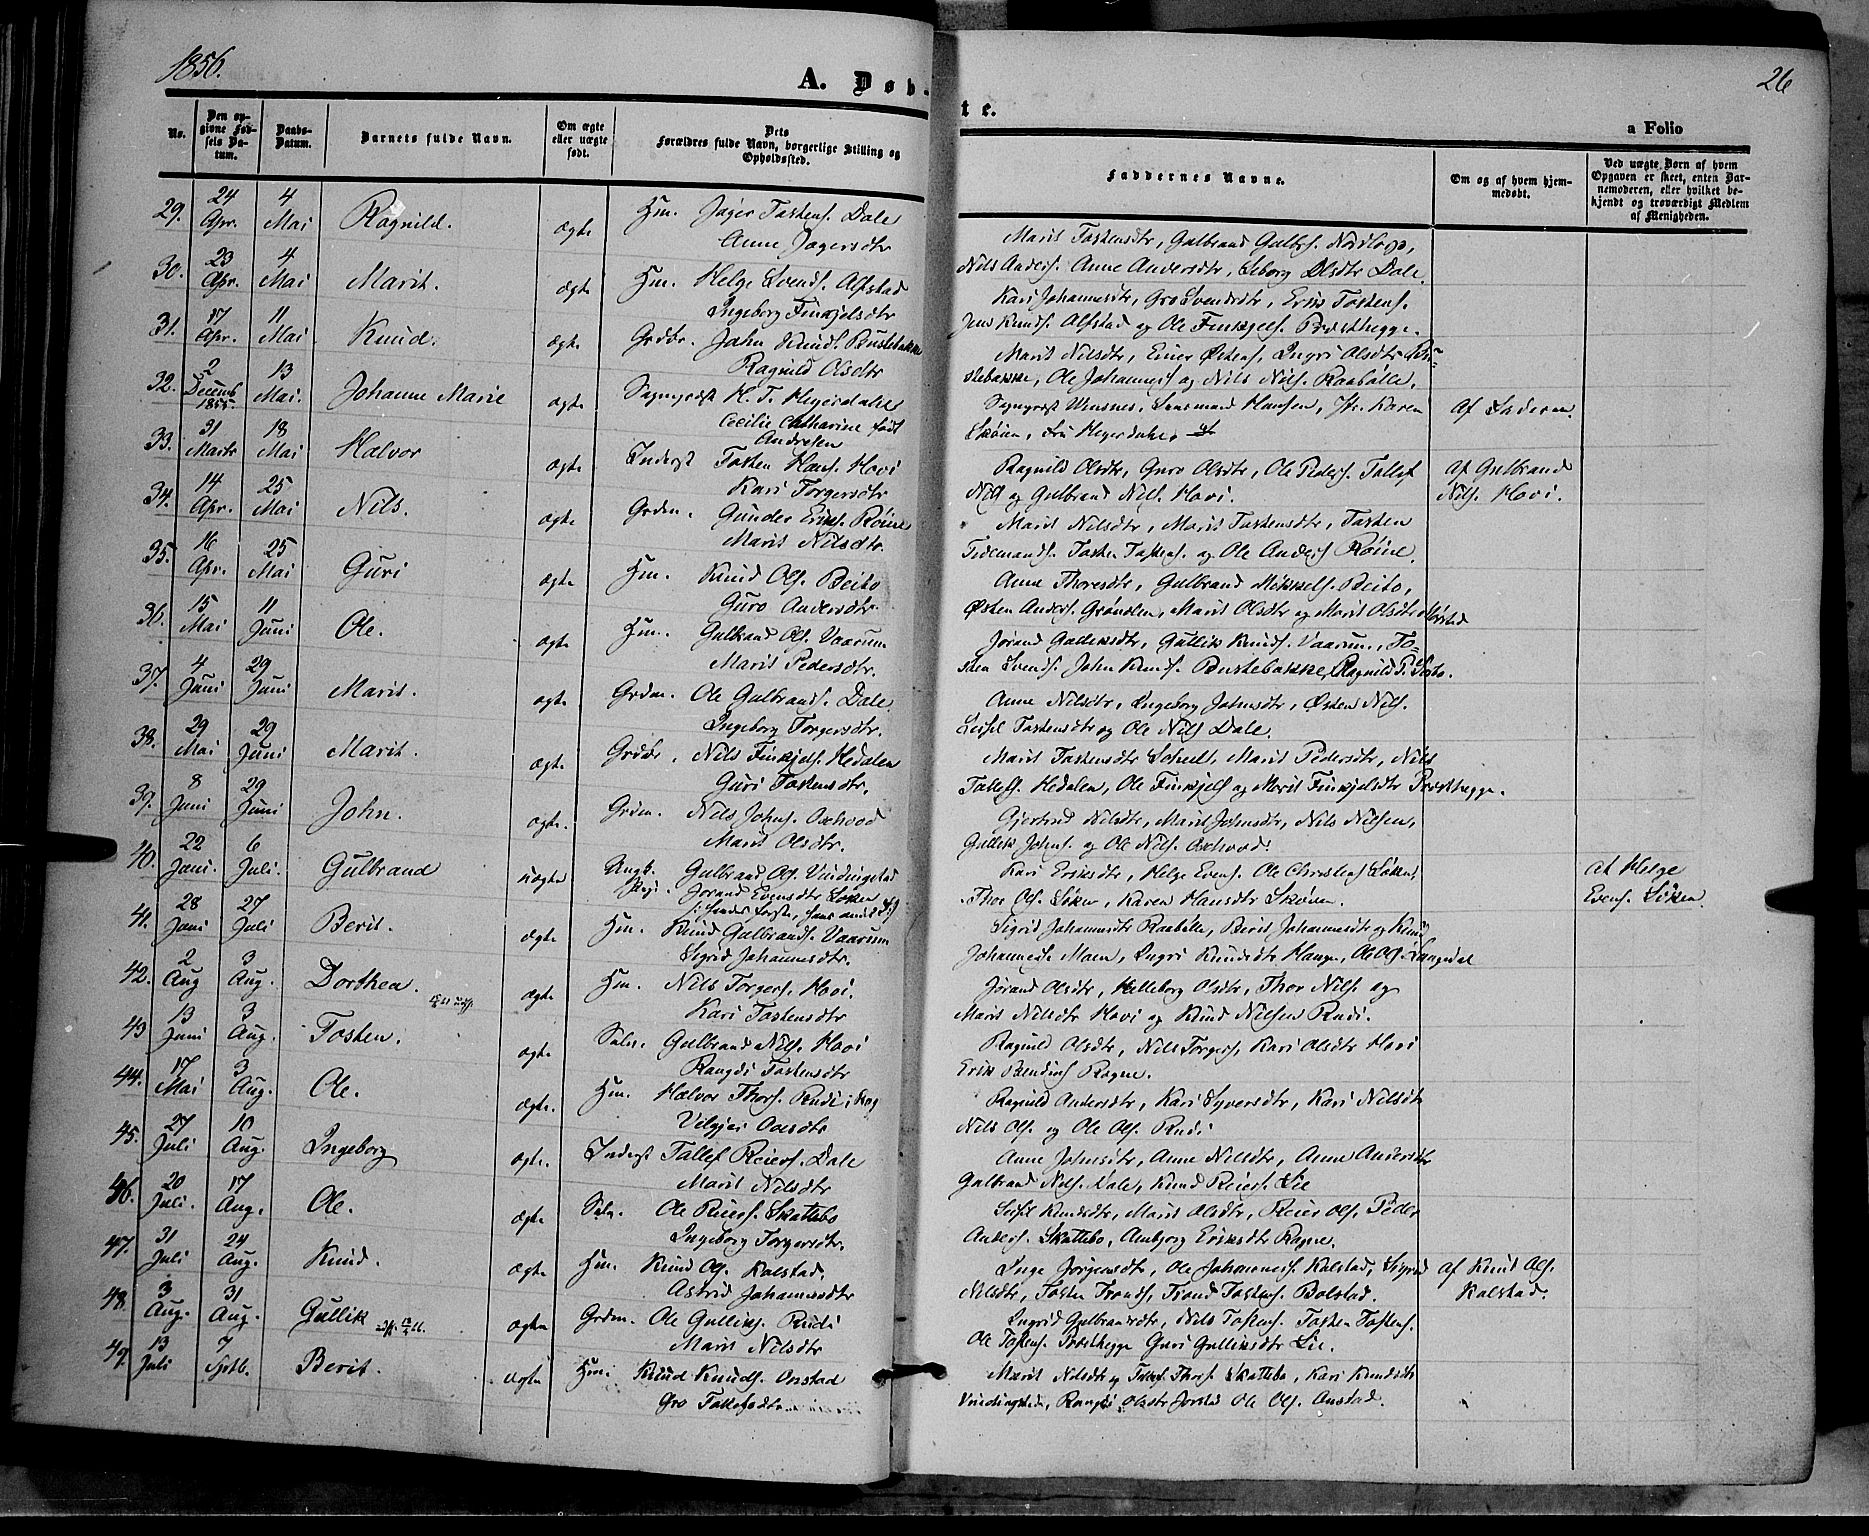 1856.
26
A. Døb-
te.
a Folio
No.
Den op-
givne Fød-
sels Da-
tum.
Daabs-
Datum.
Barnets fulde Navn.
Om ægte
eller uægte
født.
Dets
Forældres fulde Navn, borgerlige Stilling og
Opholdssted.
Faddernes Navne.
Om og af hvem hjem-
medøbt.
Ved uægte Børn af hvem
Opgaven er skeet, enten Bar-
nemoderen, eller hvilket be-
kjendt og troværdigt Medlem
af Menigheden.
29. 24 Apr. 4 Mai Ragnild. ægte Hm. Jøger Tostens. Dale
Anne Jøgersdtr
Marit Tostensdtr, Gulbrand Gulbs.
Nils Anders. Anne Andersdtr, Olsdtr Dale
30. 23 Apr. 4 Mai Marit. ægte Hm. Helge Svends. Alfstad
Ingeborg Finkjelsdtr
Kari Johannesdtr, Gro Svendsdtr, Erik Tostens.
Jens Knuds. Alfstad og Ole Finkjels. Præsthegge.
31. 17 Apr. 11 Mai Knud. ægte Grdbr. John Knuds. Bustebakke
Ragnild Olsdtr
Marit Nilsdtr, Einer Østens, Ingri Olsdtr Bu-
stebakke, Ole Johannes og Nils Nils. Raabølle.
32. 2 Decemb 1855. 13 Mai. Johanne Marie ægte Sogneprest H. T. Heyerdahl
Cecilie Catharine født
Andresen
Sogneprst Wensnes, Lensmand Hansen, Jfr. Karen
Skøien, Fru Heyerdahl.
Af Faderen.
33. 31 Marts 18 Mai Halvor ægte Inderst Tosten Hans. Hovi
Kari Torgersdtr
Ragnild Olsdtr, Guro Olsdtr, Ole Peders. Tollef
Nils og Gulbrand Nils. Hovi.
Af Gulbrand
Nils. Hovi.
34. 14 Apr. 25 Mai Nils. ægte Grdm. Gunder Eriks. Røine
Marit Nilsdtr.
Marit Nilsdtr, Marit Tostensdtr, Tosten
Tidemands. Tosten Tostens. og Ole Anders Røine.
35. 16 Apr. 25 Mai Guri ægte Hm. Knud Ols. Beito
Guro Andersdtr
Anne Thoresdtr, Gulbrand Mikkels. Beito,
Østen Anders. Grønolen, Marit Olsdtr og Marit Olsdtr
36. 15 Mai 11 Juni Ole. ægte Hm. Gulbrand Ols. Vaarum
Marit Pedersdtr.
Jørand Gulliksdtr, Gullik Knuds. Vaarum, To-
sten Svends. John Knuds. Bustebakke, Ragnild
37. 4 Juni 29 Juni Marit. ægte Grdm. Ole Gulbrands. Dale
Ingeborg Torgersdtr.
Anne Nilsdtr, Ingeborg Johnsdtr, Østen Nils.
Tostensdtr og Ole Nils Dale.
38. 29 Mai 29 Juni Marit. ægte Grdbr. Nils Finkjels. Hedalen
Guri Tostensdtr.
Marit Tostensdtr Marit Pedersdtr, Nils
Tollefs. Hedalen, Ole Finkjels og Marit Finkjelsdtr Præsthegge.
39. 8 Juni 29 Juni John. ægte. Grdm. Nils Johns. Oxhovd
Marit Olsdtr.
Gjertrud Nilsdtr, Marit Johnsdtr, Nils Nilsen,
Gullik Johns. og Ole Nils. Oxhovd.
40. 22 Juni. 6 Juli. Gulbrand uægte Ungk. Gulbrand Ols. Vindingstad
Pige. Jørand Evensdtr Løken
/: hendes første, hans andet :/
Kari Eriksdtr, Helge Evens. Ole Christens Løken
Thor Ols. Løken, Karen Hansdtr Skøien.
at Helge
Evens. Løken.
41. 28 Juni 27 Juli Berit. ægte Hm. Knud Gulbrands. Vaarum
Sigrid Johannesdtr.
Sigrid Johannesdtr Raabølle, Berit Johannesdtr og Knud
Johannes. Moen, Ingri Knudsdtr Haugen, Ole Ols. Langedal
42. 2 Aug 3 Aug. Dorthea. ægte Hm. Nils Torgers. Hovi.
Kari Tostensdtr
Jørand Olsdtr, Helleborg Olsdtr, Thor Nils. og
Marit Nilsdtr Hovi og Knud Nilsen Rudi.
43 13 Juni 3 Aug. Tosten. ægte Gulbrand Nils. Hovi
Rangdi Tostensdtr
Ragnild Olsdtr, Nils Torgers, Kari Olsdtr Hovi
Erik Rogne.
44. 17 Mai 3 Aug. Ole. ægte. Hm. Halvor Thors. Rudi
Olsdtr
Ragnild Andersdtr, Kari Syversdtr, Kari Nilsdtr
Nils Ols. og Ole Ols. Rudi
45. 27 Juli 10 Aug. Ingeborg ægte. Inderst Tollef Reiers. Dale
Marit Nilsdtr
Anne Johnsdtr, Anne Nilsdtr, Anne Andersdtr
Gulbrand Nils. Dale, Knud Reiers. Lie
46. 20 Juli. 17 Aug. Ole. ægte Ole Reiers. Skattebo
Ingeborg Torgersdtr.
Knudsdtr, Marit Olsdtr, Reier Ols. Peder
Anders. Skattebo, Ambjørg Eriksdtr Rogne.
47. 31 Juli 24 Aug. Knud. ægte Hm. Knud Ols. Kalstad,
Astrid Johannesdtr
Inge Jørgensdtr, Ole Johannes. Kalstad, Sigrid
Nilsdtr, Tosten Tronds, Trond Tostens. Bolstad.
af Knud Ols.
Kalstad.
48. 3 Aug. 31 Aug. Gullik ægte Grdm. Ole Gulliks. Rudi
Marit Nilsdtr
Ingrid Gulbrandsdtr, Nils Tostens. Tosten Tostens.
Ole Tostens. Præsthegge Guri Gulliksdtr Lie.
49. 13 Juli 7 Septb. Berit. ægte Hm. Knud Knuds. Onstad
Gro Tollefsdtr
Marit Nilsdtr og Tollef Thors Skattebo, Kari Knudsdtr
Vindingstad, Rangdi Olsdtr Jorstad Ole Ols. Onstad.